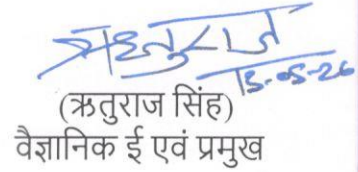 ऋतुराज
15-05-26
(ऋतुराज सिंह)
वैज्ञानिक ई एवं प्रमुख